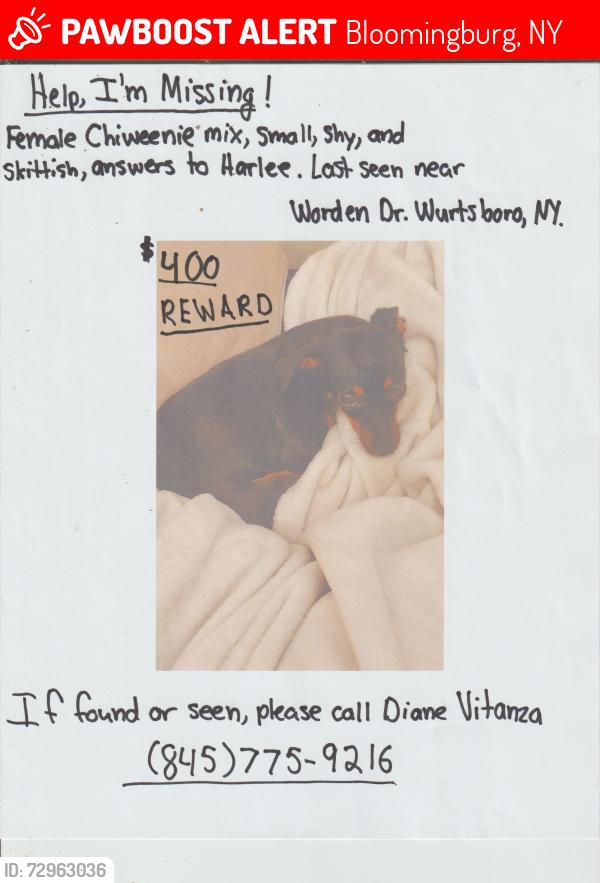 PAWBOOST ALERT Bloomingburg, NY
Help, I'm Missing!
Female Chiweenie mix, small, shy, and
skittish, answers to Harlee. Last seen near
Worden Dr. Wurtsboro, NY.
$400
REWARD
If found or seen, please call Diane Vitanza
(845)775-9216
ID: 72963036